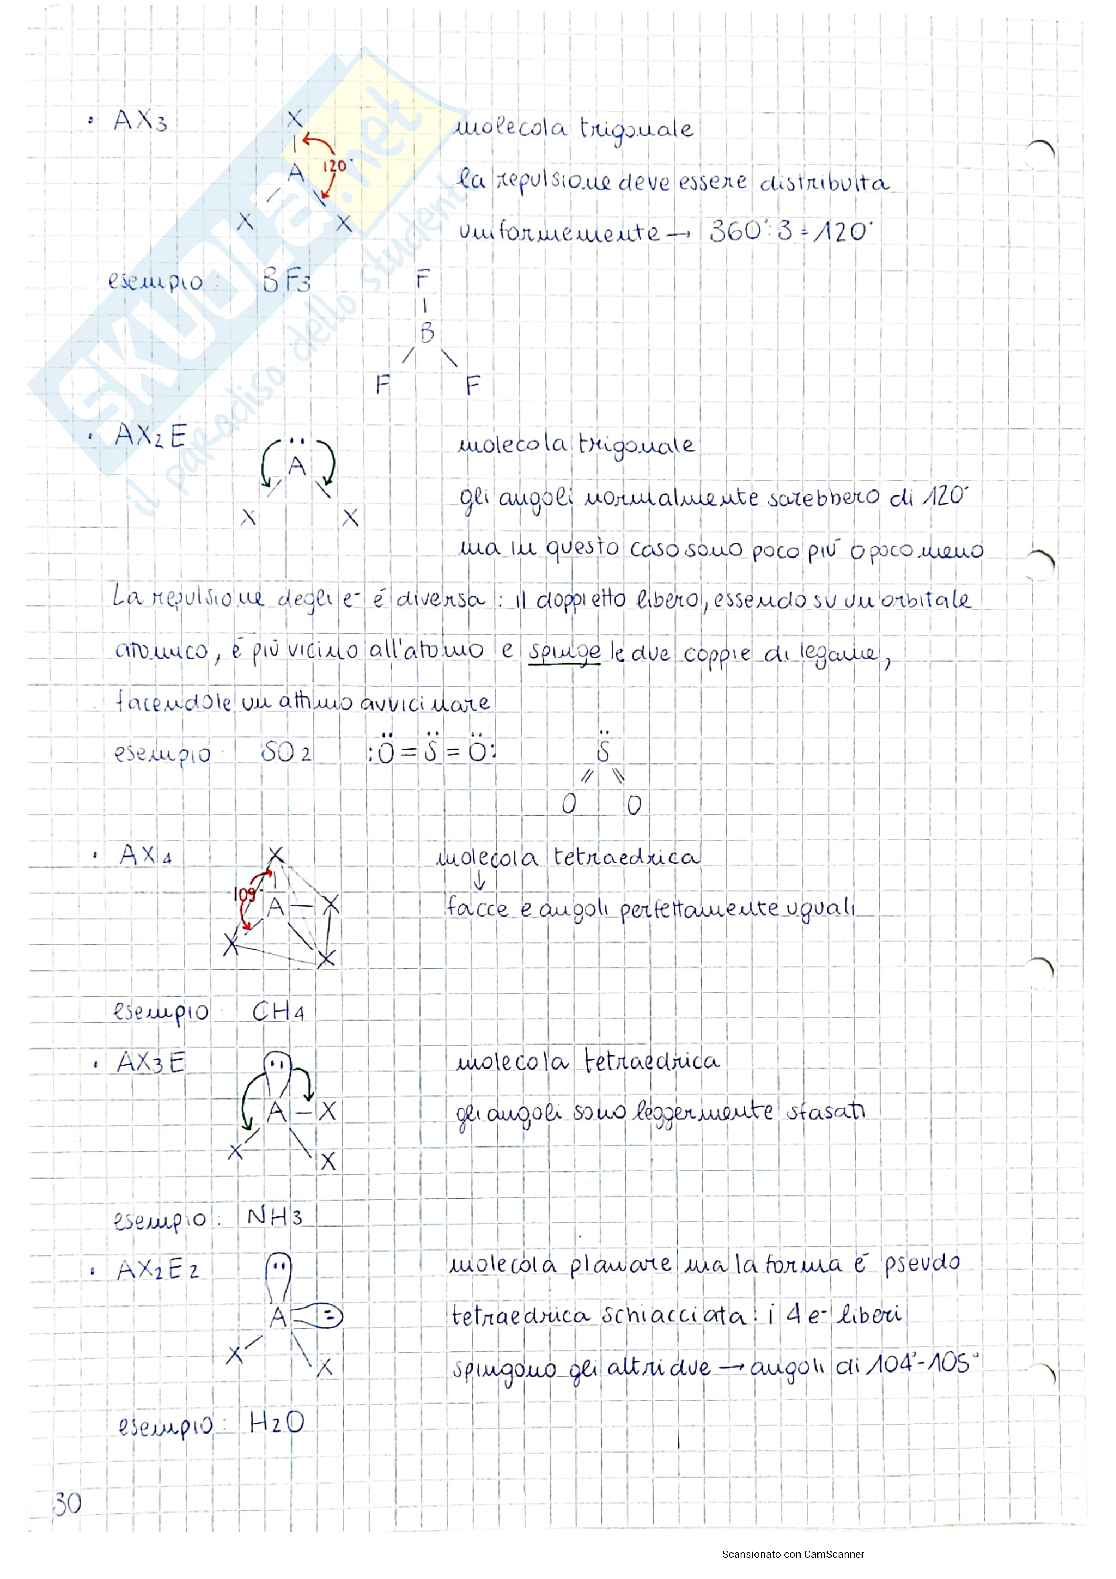 • AX3
X
A
120°
X
X
molecola trigonale
la repulsione deve essere distribuita
uniformemente → 360° : 3 = 120°
esempio: BF3
F
B
F
F
• AX2E
A
X
X
molecola trigonale
gli angoli normalmente sarebbero di 120°
ma in questo caso sono poco più o poco meno
La repulsione degli e- é diversa: il doppietto libero, essendo su un orbitale
atomico, é più vicino all'atomo e spinge le due coppie di legame,
facendole un attimo avvicinare
esempio SO2 :Ö = S̈ = Ö:
S̈
O
O
• AX4
X
109°
A – X
X
X
molecola tetraedrica
↓
facce e angoli perfettamente uguali
esempio CH4
• AX3E
A – X
X
X
molecola tetraedrica
gli angoli sono leggermente sfasati
esempio: NH3
• AX2E2
A
X
X
molecola planare ma la forma é pseudo
tetraedrica schiacciata: i 4 e- liberi
spingono gli altri due → angoli di 104°-105°
esempio: H2O
30
SKUOLA.net
il paradiso dello studente
Scansionato con CamScanner